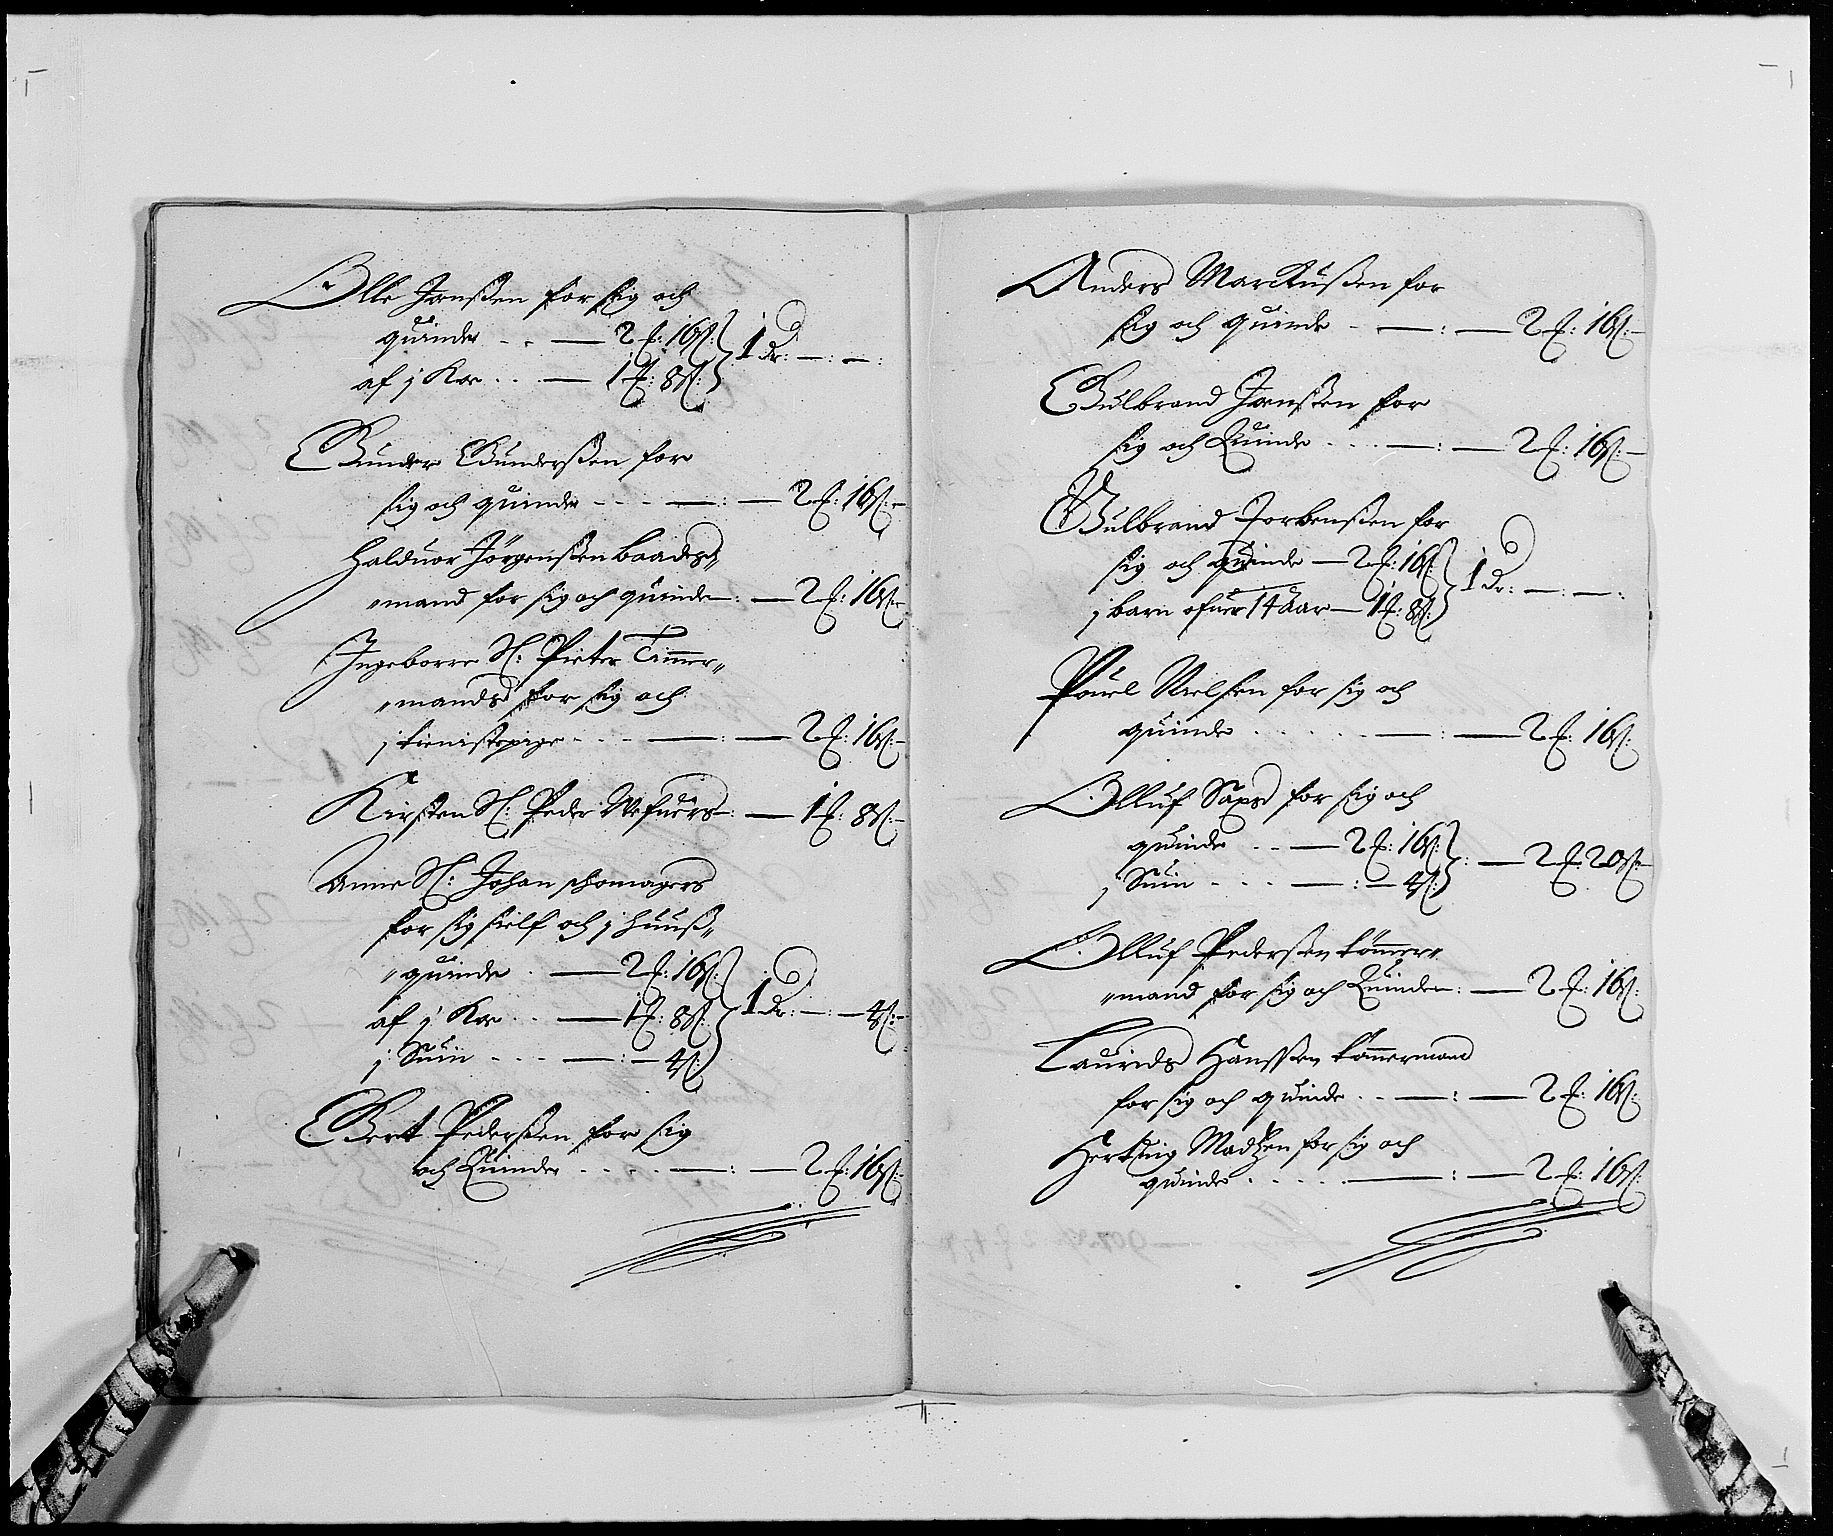 Olle Jenssen for sig och
quinde - - — 2 ƶ: 16 ß:
1 Dr: —: —:
af j Koe . . . — 1 ƶ: 8 ß:
Gunder Gunderssen for
sig och quinde - - - —: — 2 ƶ: 16 ß:
Halduor Jørgenssen baads„
„mand for sig och quinde —: — 2 ƶ: 16 ß:
Ingeborre Sl: Pieter Timmer„
„mands for sig och
j tienistepige - - - —: — 2 ƶ: 16 ß:
Kirsten Sl: Peder Wefuers —: — 1 ƶ: 8 ß:
Anne Sl: Johan schomagers
for sig sielf och j huuß„
„quinde . — 2 ƶ: 16 ß:
af j Koe . . — 1 ƶ: 8 ß:
1 Dr: —: — 4 ß:
j Suin - - - —: — 4 ß:
Gert Pederssen for sig
och Quinde - - - - —: — 2 ƶ: 16 ß:
Anders Markussen for
sig och quinde - —: — 2 ƶ: 16 ß:
Gulbrand Jenssen for
sig och Quinde . . . —: — 2 ƶ: 16 ß:
Gulbrand Torbenssen for
sig och quinde — 2 ƶ: 16 ß:
1 Dr: —: —:
j barn ofuer 14 aar — 1 ƶ: 8 ß:
Pouel Nielsen for sig och
quinde . . . . . —: — 2 ƶ: 16 ß:
Olluf for sig och
quinde . . — 2 ƶ: 16 ß:
: — 2 ƶ: 20 ß:
j Suin - - - —: — 4 ß:
Olluf Pederssen tømmer„
„mand for sig och Quinde —: — 2 ƶ: 16 ß:
Laurids Hanssen tømmermand
for sig och quinde . . —: — 2 ƶ: 16 ß:
Madtzen for sig och
quinde . . . . . —: — 2 ƶ: 16 ß: